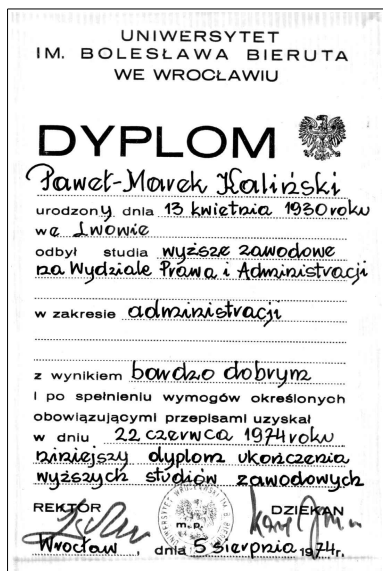 UNIWERSYTET
IM. BOLESŁAWA BIERUTA
WE WROCŁAWIU
DYPLOM
Paweł-Marek Kaliński
urodzony dnia 13 kwietnia 1930 roku
we Lwowie
odbył studia wyższe zawodowe
na Wydziale Prawa i Administracji
w zakresie administracji
z wynikiem bardzo dobrym
i po spełnieniu wymogów określonych
obowiązującymi przepisami uzyskał
w dniu 22 czerwca 1974 roku
niniejszy dyplom ukończenia
wyższych studiów zawodowych
REKTOR DZIEKAN
m. p.
Wrocław, dnia 5 sierpnia 1974r.